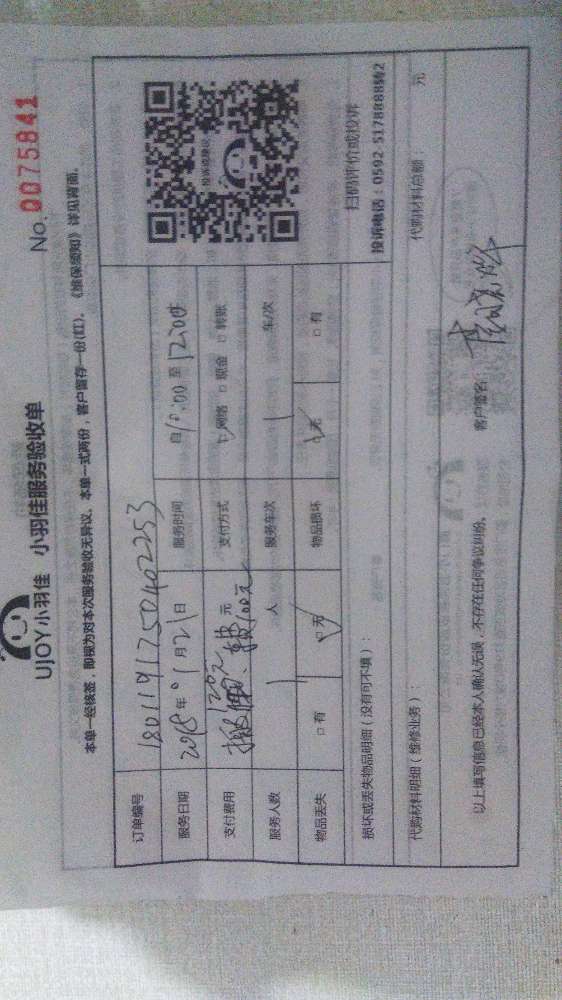 UJOY小羽佳 小羽佳服务验收单
No. 0075841
本单一经核签，即视为对本次服务验收无异议。本单一式两份，客户留存一份(红)。《维保须知》详见背面。
订单编号 1801191750402253
服务日期 2018年01月21日 服务时间 自10:00至12:00
支付费用 120元 元 支付方式 □网络 □现金 □转账
服务人数 1 人 服务车次 1 车/次
物品丢失 □有 □无 物品损坏 □无 □有
投诉或建议
扫码评价或投诉
投诉电话：0592 5178888转2
损坏或丢失物品明细（没有可不填）：
代购材料明细（维修业务）： 代购材料总额： 元
以上填写信息已经本人确认无误，不存在任何争议纠纷。 客户签名：